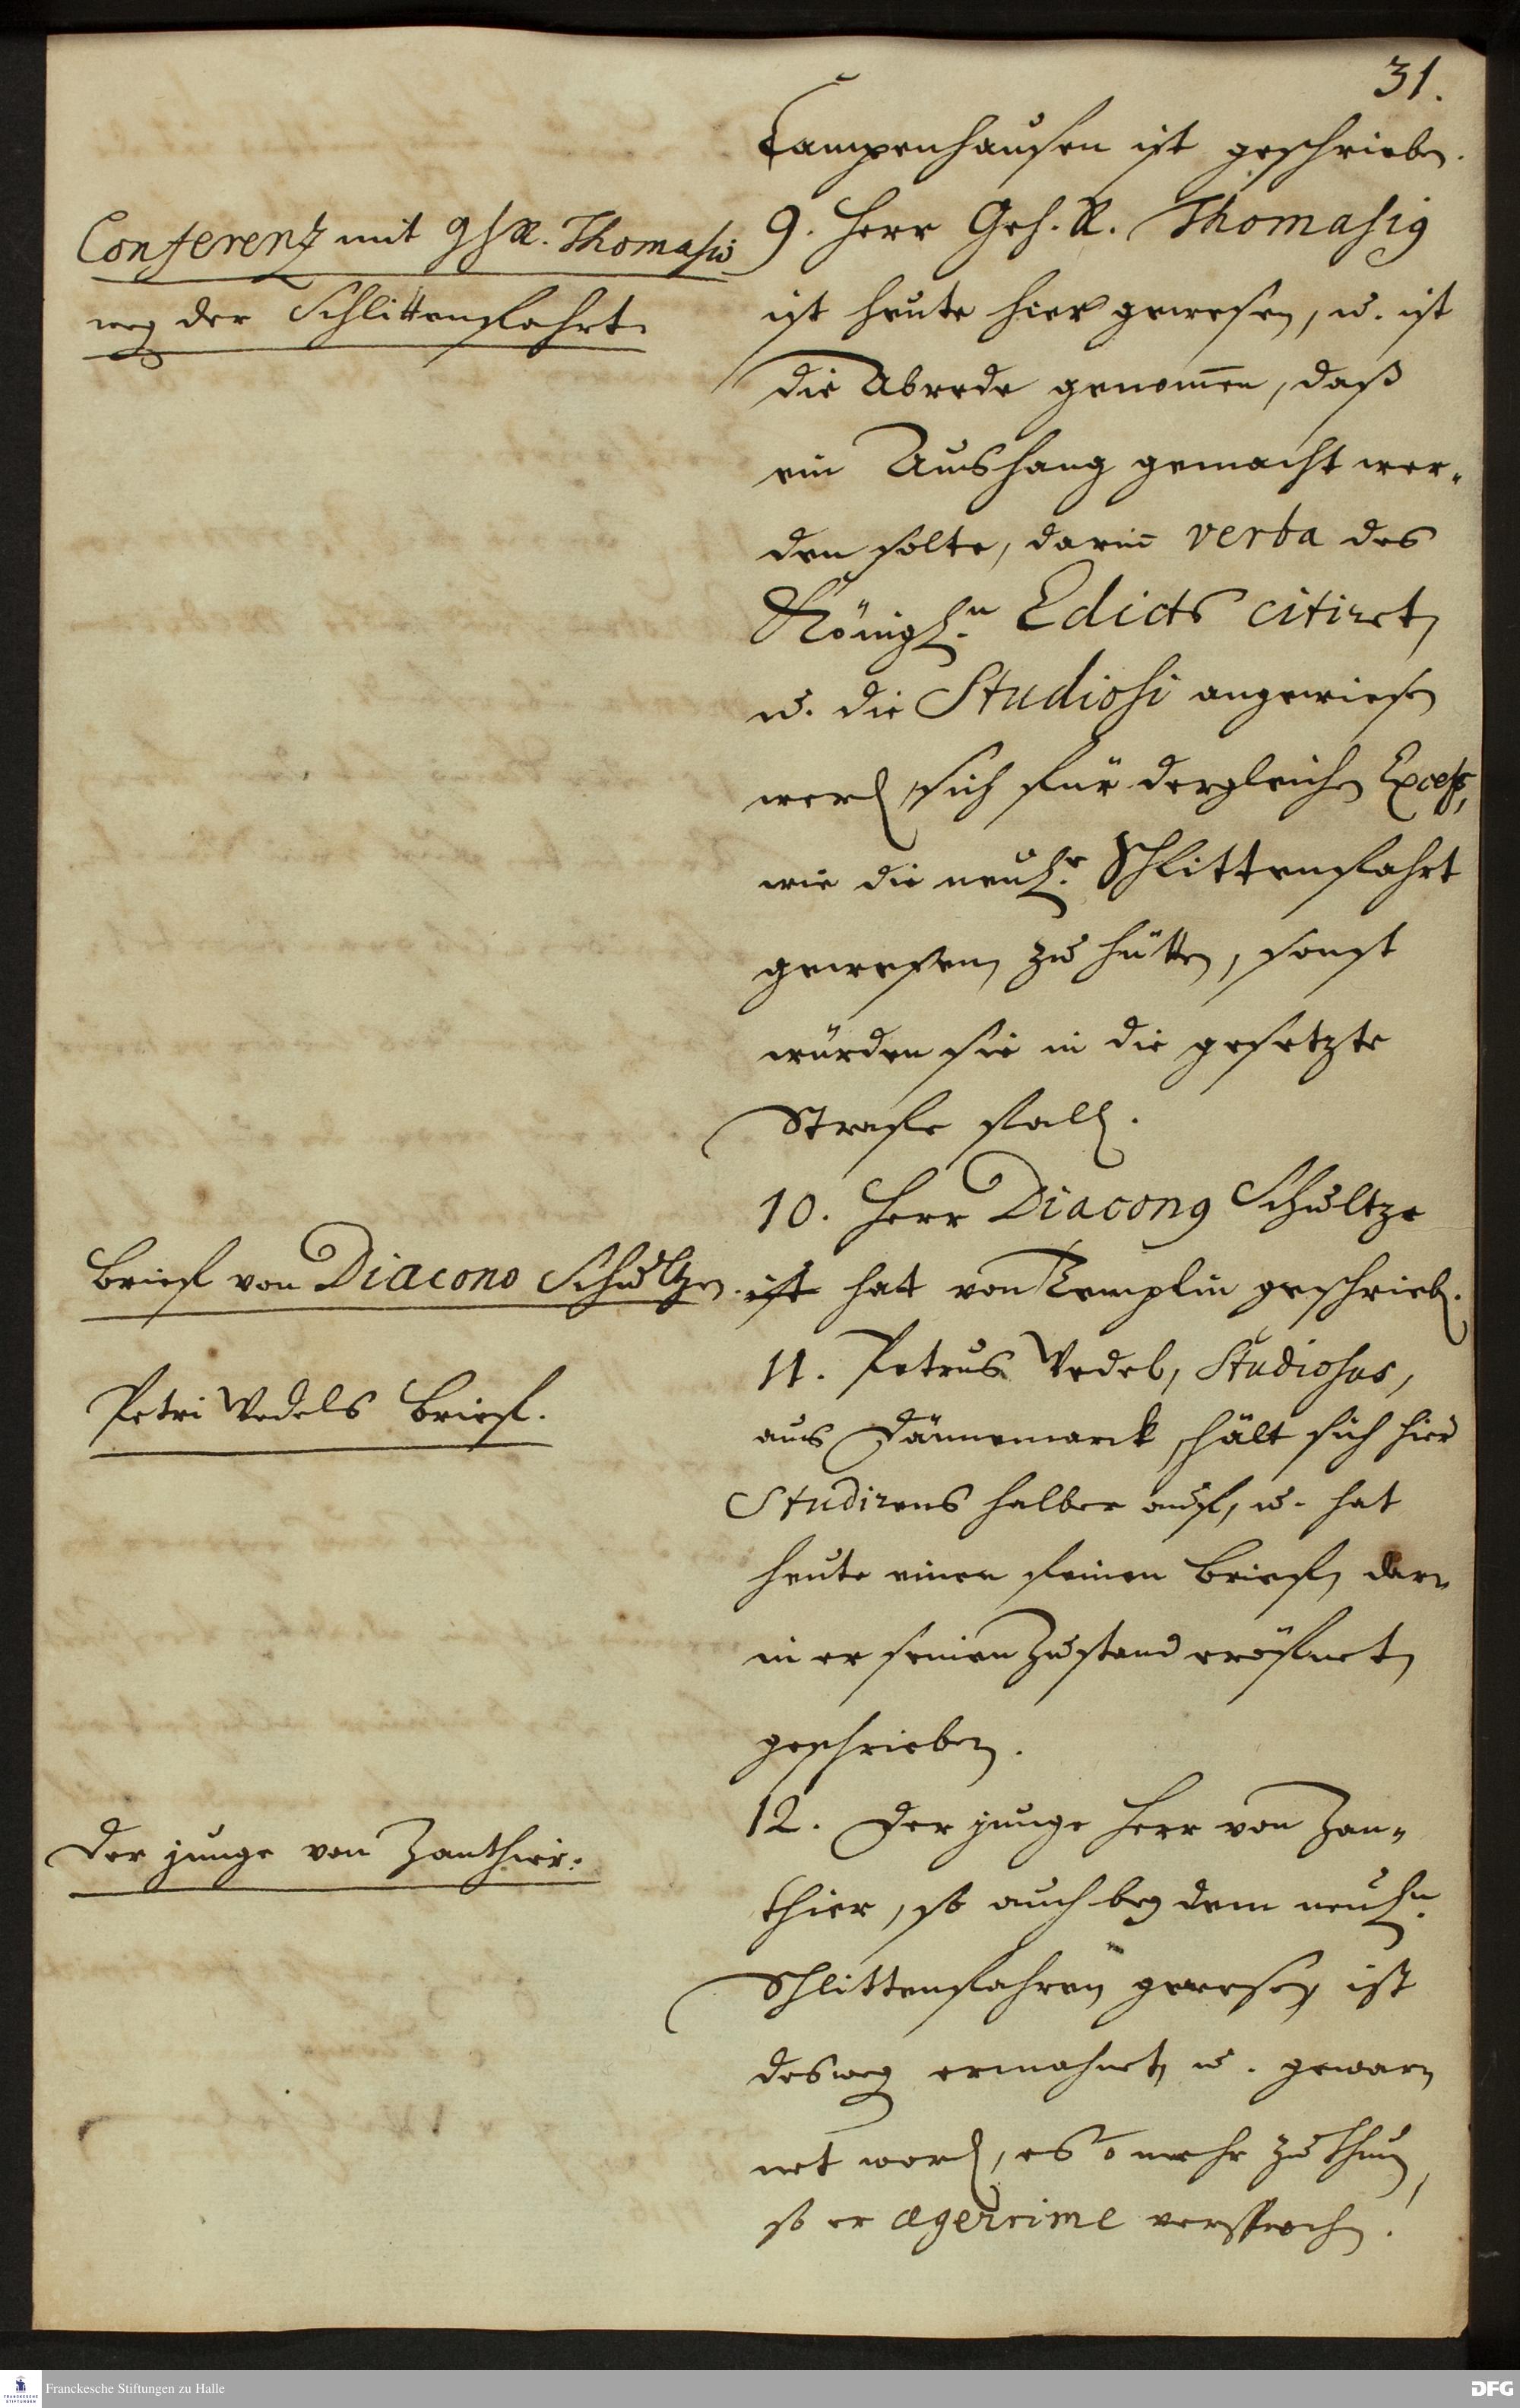 31.
Campenhausen ist geschrieben.
Conferentz mit GhR. Thomasio
weg der Schlittenfahrt.
9. Herr Geh. R. Thomasig
ist heute hier gewesen, u. ist
die Abrede genom̄en, daß
ein Aushang gemacht wer-
den solte, darin̄ verba des
Königln. Edicts citiret,
u. die Studiosi angewiesen
werden sich für dergleichen Excess,
wie die neulr. Schlittenfahrt
gewesen, zu hütten, sonst
würden sie in die gesetzte
Strafe fallen.
Brief von Diacono Schultzen.
10. Herr Diacong Schultze
ist hat von Templin geschrieben.
Petri Vedels Brief.
11. Petrus Vedel, Studiosus,
aus Dännemarck, hält sich hier
Studirens halber auf, u. hat
heute einen feinen Brief, dar-
in er seinen Zustand eröfnet,
geschrieben.
Der junge von Zanthier.
12. Der junge Herr von Zan-
thier, so auch bey dem neuln.
Schlittenfahren gewesen, ist
desweg ermahnet, u. gewar-
net worden, es o mehr zu thun,
so er aegerrime versprochen.
Franckesche Stiftungen zu Halle
DFG